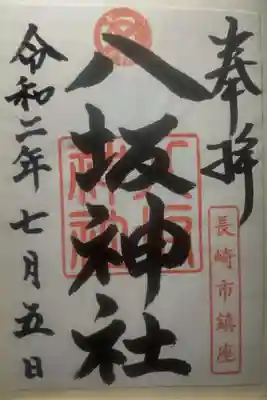 奉拝
長崎市鎮座
八坂神社
令和二年七月五日